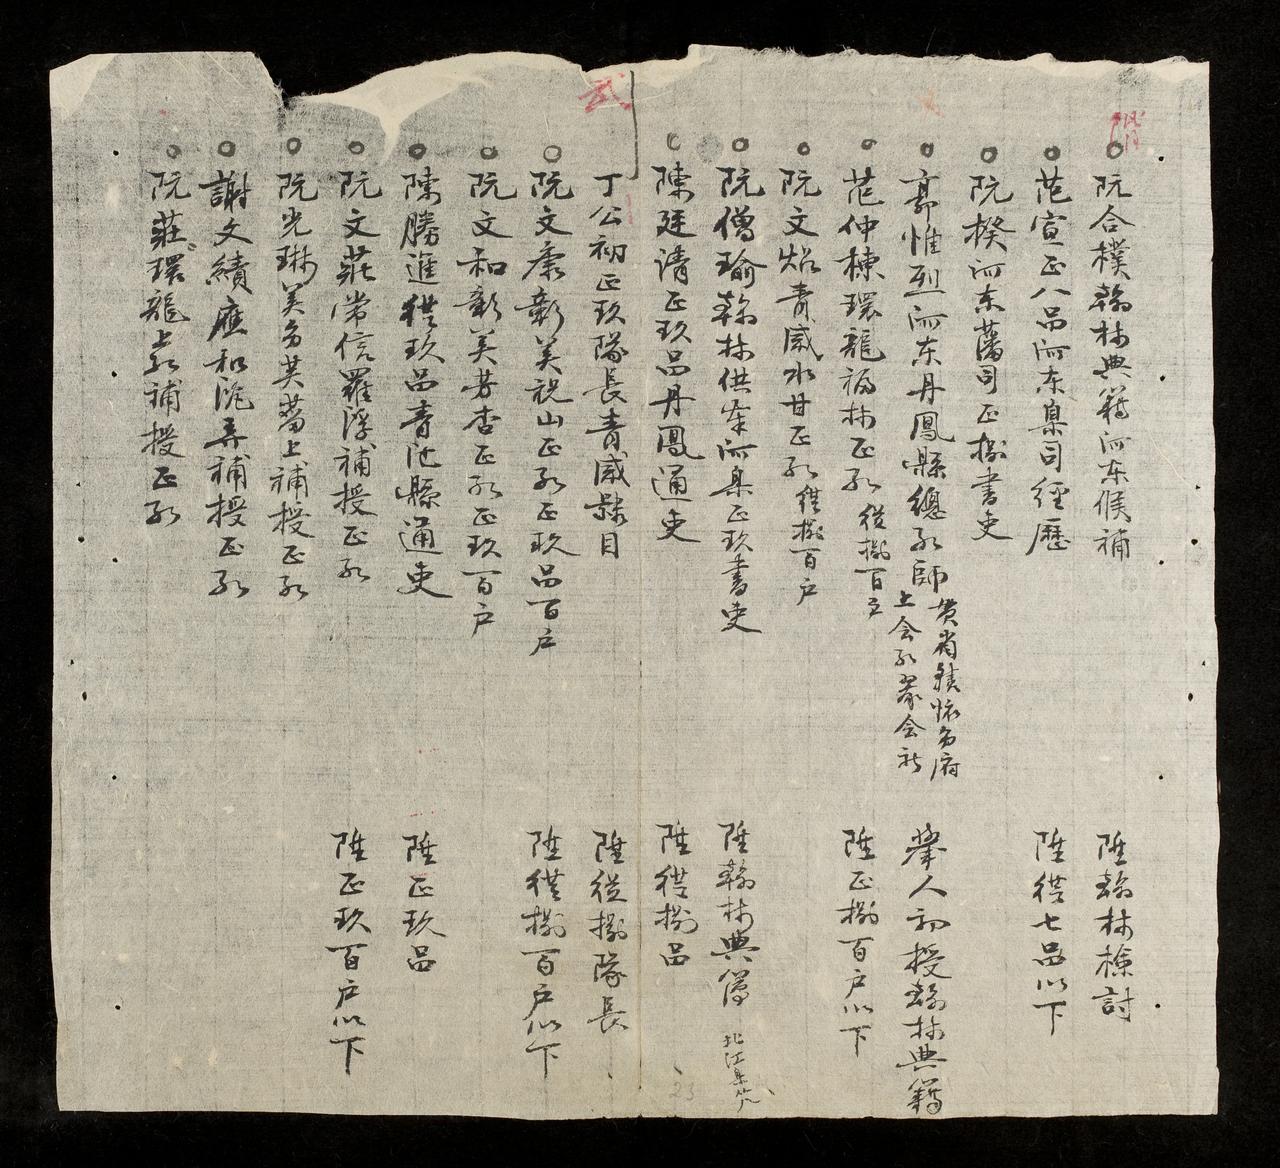 階
阮合樸翰林典籍河东候補 陞翰林檢討
范宣正八品河东臬司經歷 陞従七品以下
阮揆河东藩司正捌書吏
郭惟烈河东丹鳳縣總教師 貫省懷為府
上会教蒙会社 舉人初授翰林典籍
范仲棟環龍福林正教従捌百户 陞正捌百户以下
阮文焰青威水甘正教従捌百户
阮僧瑜翰林供奉河臬正玖書吏 陞翰林典簿 北江
陳廷清正玖品丹鳳通吏 陞従捌品
武
丁公初正玖隊長青威隸目 陞従捌隊長
阮文康彰美祝山正教正玖品百户 陞従捌百户以下
阮文和彰美芳杏正教正玖百户
陳勝進従玖品青池縣通吏 陞正玖品
阮文莊常信羅浮補授正教 陞正玖百户以下
阮光琳美上補授正教
謝文續應和補授正教
阮莊環龍上教補授正教
23